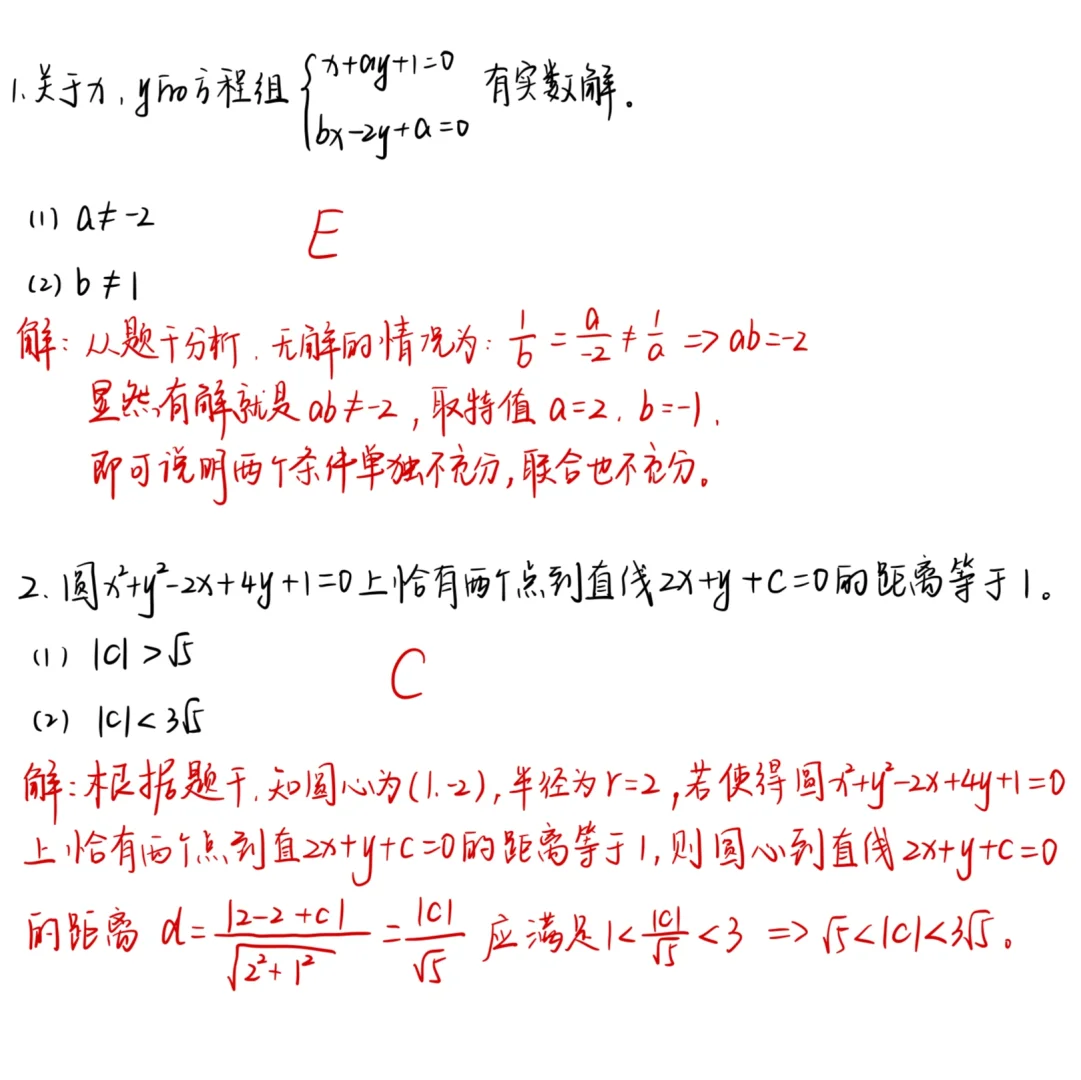 1.关于x,y的方程组{x+ay+1=0 有实数解.
bx-2y+a=0
(1) a≠-2
E
(2) b≠1
解:从题干分析.无解的情况为: 1/b = a/-2 ≠ 1/a => ab=-2
显然,有解就是ab≠-2,取特值 a=2. b=-1,
即可说明两个条件单独不充分,联合也不充分。
2.圆x²+y²-2x+4y+1=0上恰有两个点到直线2x+y+C=0的距离等于1。
(1) |C|>√5
C
(2) |C|<3√5
解:根据题干,知圆心为(1.-2),半径为r=2,若使得圆x²+y²-2x+4y+1=0
上恰有两个点到直2x+y+c=0的距离等于1,则圆心到直线2x+y+c=0
的距离 d=|2-2+c|/√(2²+1²) = |C|/√5 应满足1<|C|/√5<3 => √5<|C|<3√5。